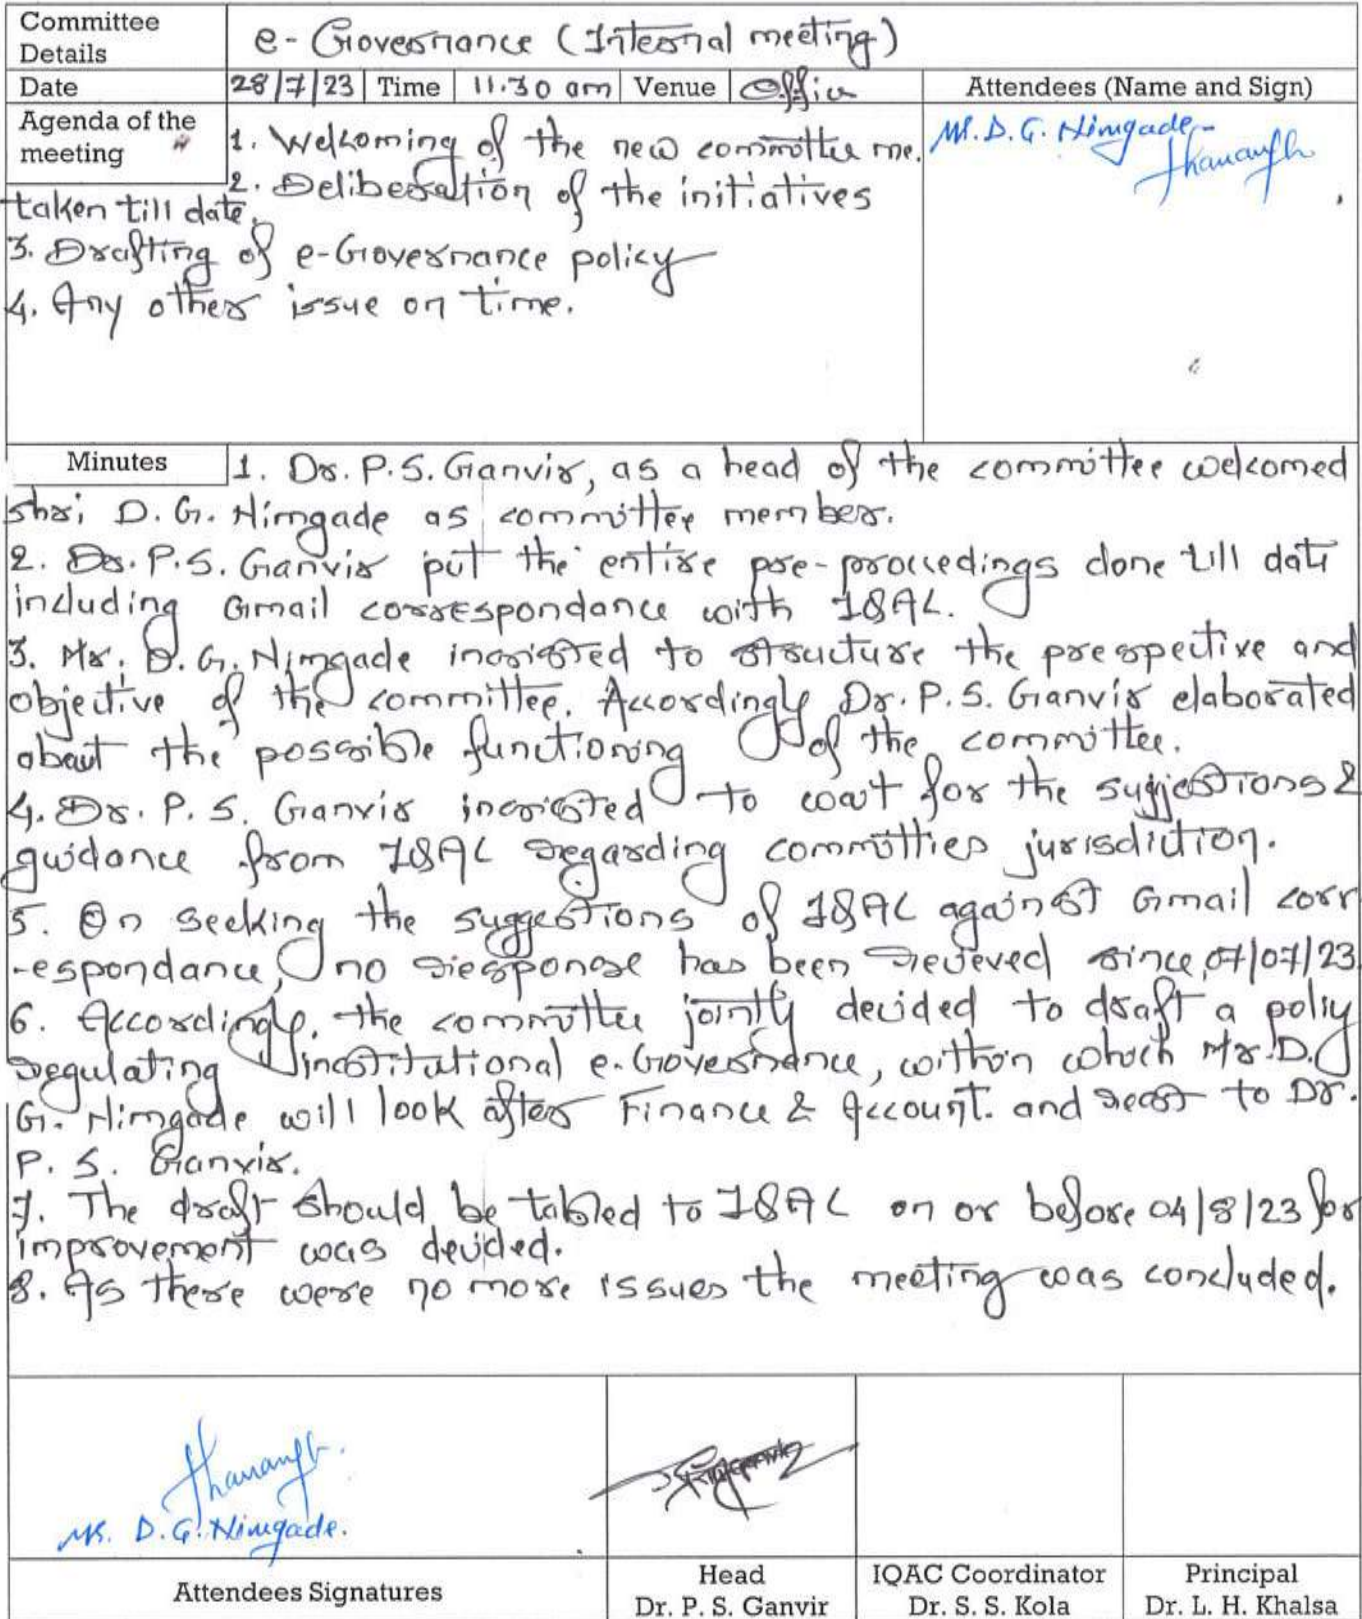 Committee Details
e-Governance (Internal meeting)
Date 28/7/23 Time 11.30 am Venue Office Attendees (Name and Sign)
Agenda of the meeting
1. Welcoming of the new committee me.
Mr. D. G. Nimgade
2. Deliberation of the initiatives
taken till date.
3. Drafting of e-Governance policy
4. Any other issue on time.
Minutes 1. Dr. P.S. Ganvir, as a head of the committee welcomed
shri D. G. Nimgade as committee member.
2. Dr. P.S. Ganvir put the entire pre-proceedings done till date
including Gmail correspondance with IQAC.
3. Mr. D. G. Nimgade insisted to structure the prespective and
objective of the committee. Accordingly Dr. P. S. Ganvir elaborated
about the possible functioning of the committee.
4. Dr. P. S. Ganvir insisted to wait for the sugjestions &
guidance from IQAC regarding committies jurisdiction.
5. On seeking the suggestions of IQAC against Gmail corr
-espondance, no response has been recieved since 07/07/23
6. Accordingly, the committee jointly decided to draft a policy
regulating institutional e-Governance, within which Mr. D.
G. Nimgade will look after Finance & Account. and rest to Dr.
P. S. Ganvir.
7. The draft should be tabled to IQAC on or before 04/8/23 for
improvement was decided.
8. As there were no more issues the meeting was concluded.
Mr. D. G. Nimgade.
Attendees Signatures
Head
Dr. P. S. Ganvir
IQAC Coordinator
Dr. S. S. Kola
Principal
Dr. L. H. Khalsa